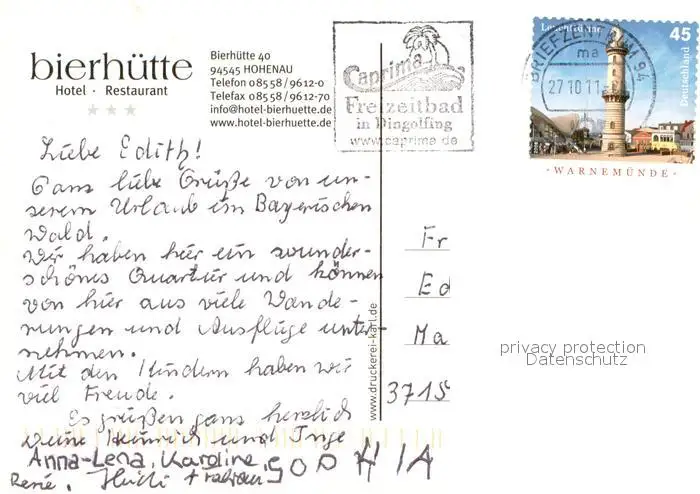 bierhütte
Hotel · Restaurant
Bierhütte 40
94545 HOHENAU
Telefon 0 85 58 / 96 12-0
Telefax 0 85 58 / 96 12-70
info@hotel-bierhuette.de
www.hotel-bierhuette.de
Caprima
Freizeitbad
in Dingolfing
www.caprima.de
BRIEFZENTRUM 94
ma
27 10 11
Leuchttürme
45
Deutschland
· WARNEMÜNDE ·
Liebe Edith!
Ganz liebe Grüße von un-
serem Urlaub im Bayerischen
Wald.
Wir haben hier ein wunder-
schönes Quartier und können
von hier aus viele Wande-
rungen und Ausflüge unter-
nehmen.
Mit den Kindern haben wir
viel Freude.
Es grüßen ganz herzlich
Deine Heinrich und Inge
Anna-Lena, Karoline, SOPHIA
René,
www.druckerei-karl.de
Fr
Ed
Ma
3715
privacy protection
Datenschutz